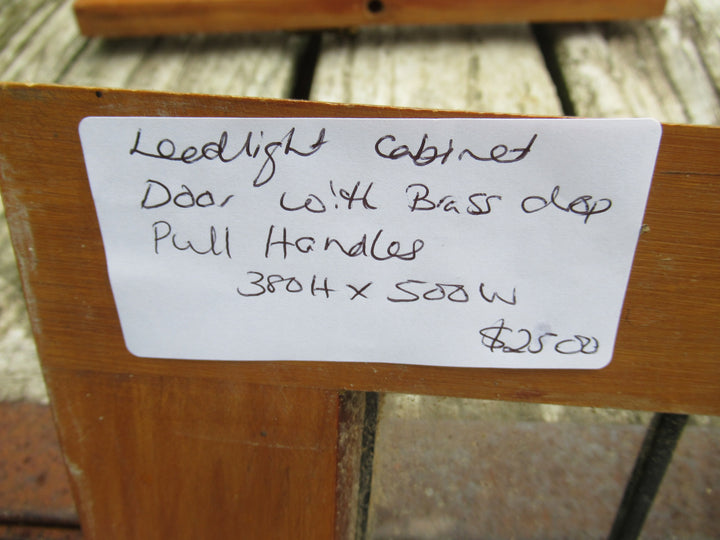 Leadlight Cabinet
Door with Brass drop
Pull Handles
380H x 500W
$25 00